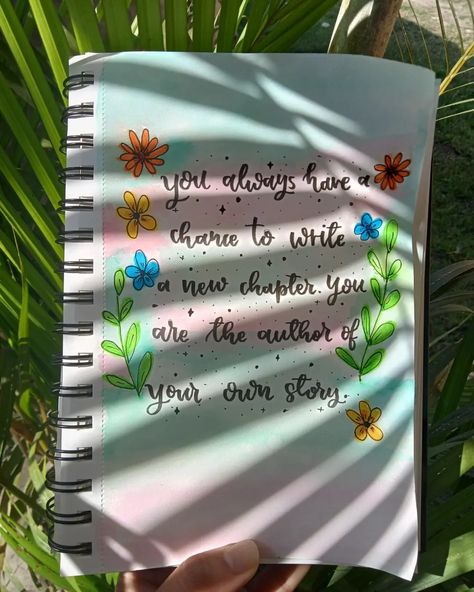 you always have a
chance to write
a new chapter. you
are the author of
your own story.